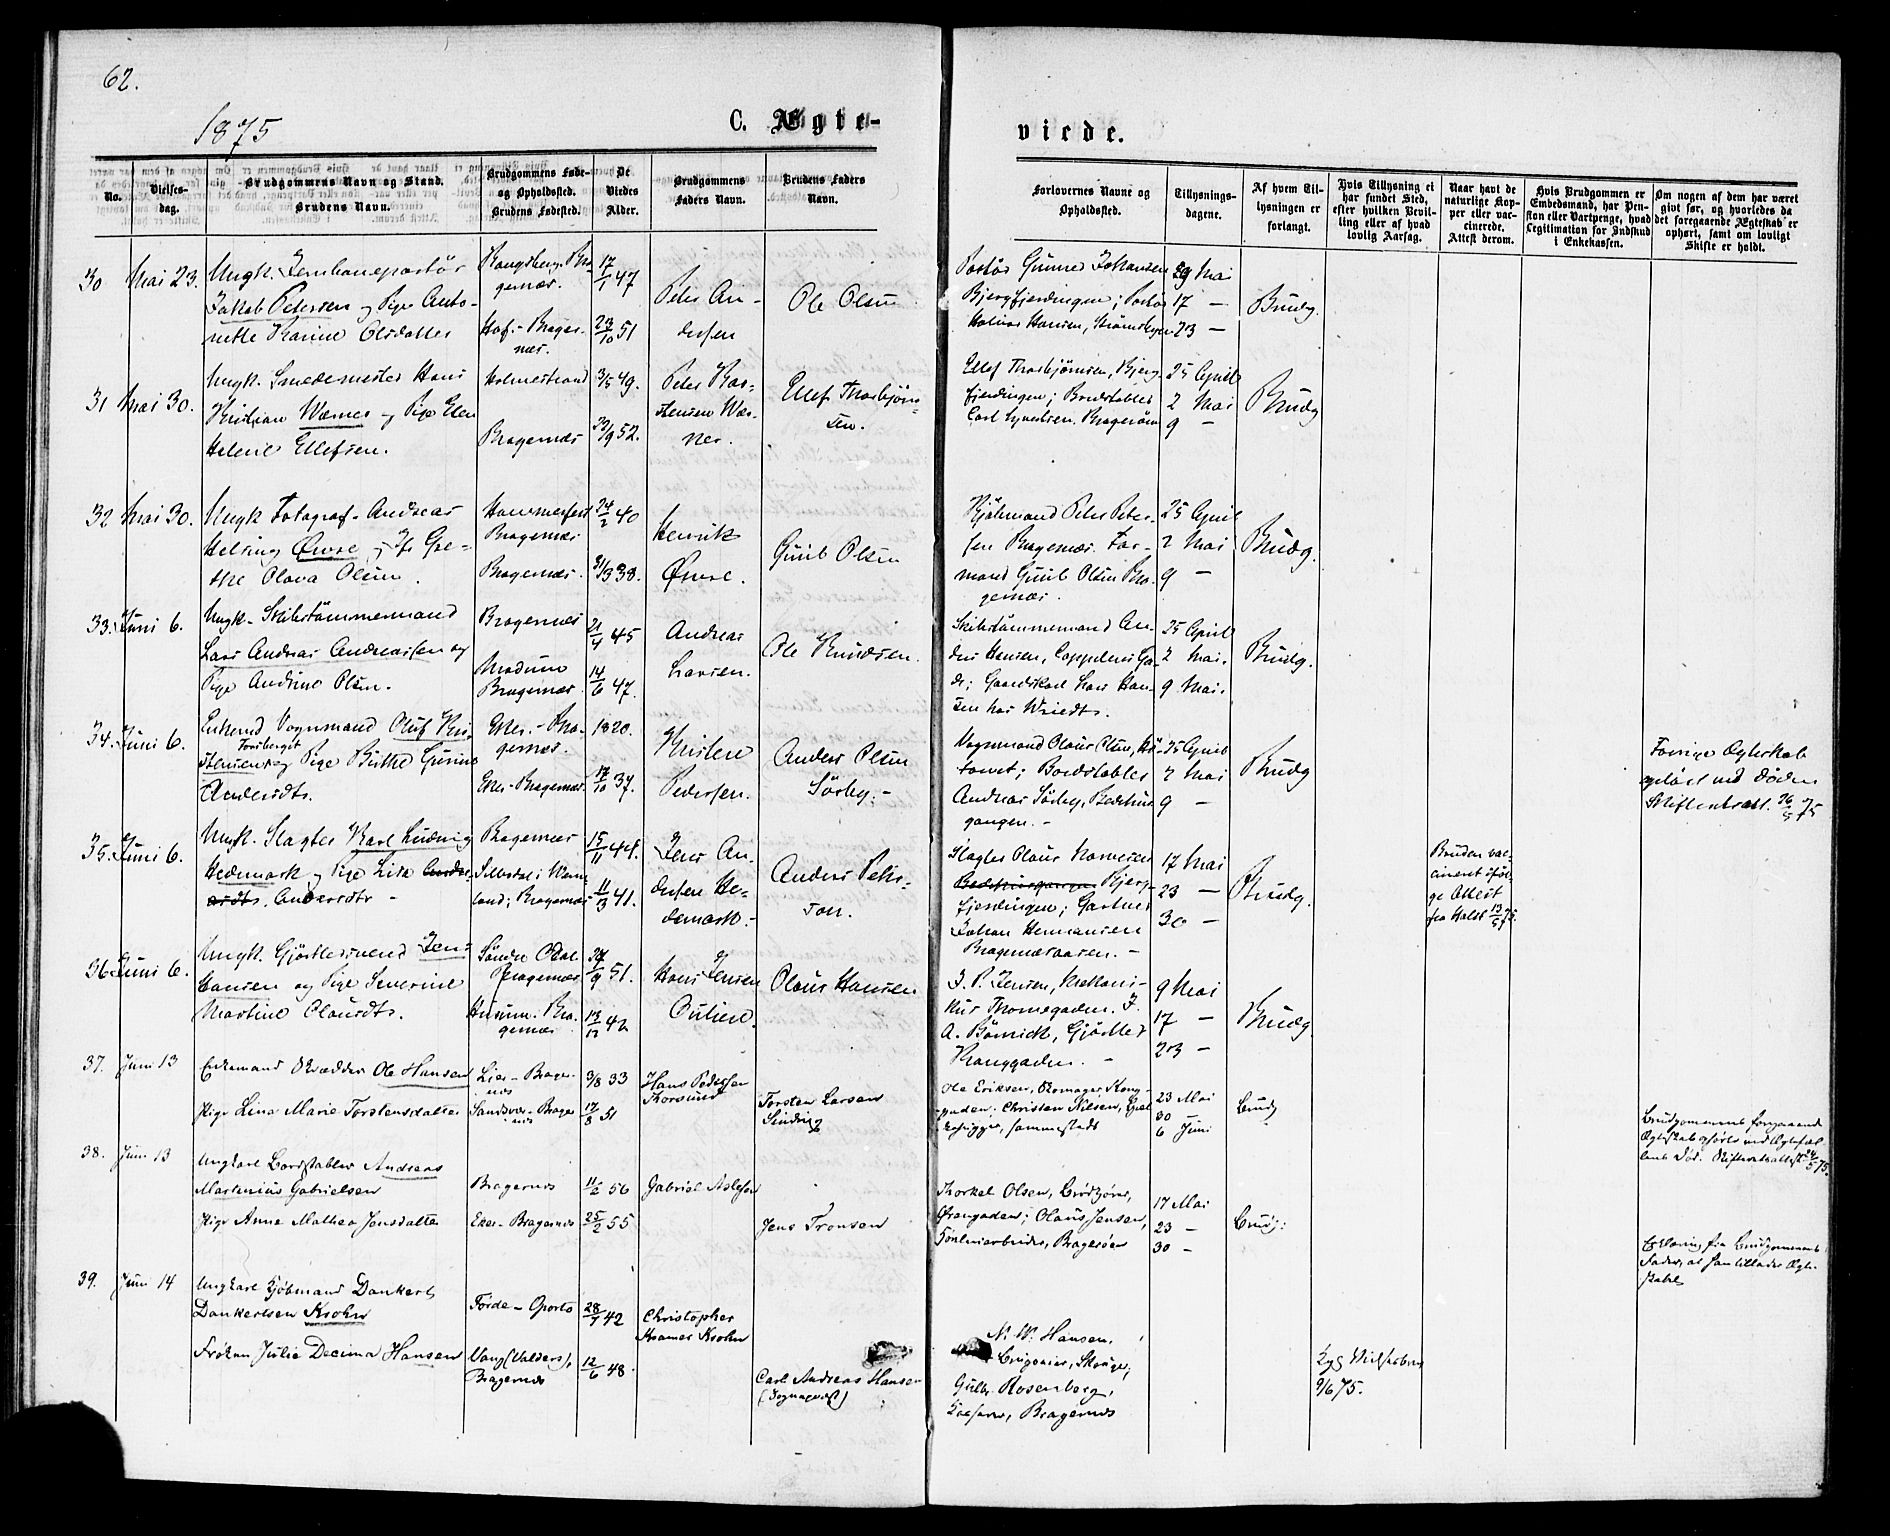 62.
1875
C. Ægte-
viede.
No.
Vielses-
dag.
Brudgommens Navn og Stand.
Brudens Navn.
Brudgommens Føde-
og Opholdssted.
Brudens Fødested.
De
Viedes
Alder.
Brudgommens
Faders Navn.
Brudens Faders
Navn.
Forlovernes Navne og
Opholdssted.
Tillysnings-
dagene.
Af hvem Til-
lysningen er
forlangt.
Hvis Tillysning ei
har fundet Sted,
efter hvilken Bevil-
ling eller af hvad
lovlig Aarsag.
Naar havt de
naturlige Kop-
per eller vac-
cinerede.
Attest derom.
Hvis Brudgommen er
Embedsmand, har Pen-
sion eller Vartpenge, hvad
Legitimation for Indskud
i Enkekassen.
Om nogen af dem har været
givt før, og hvorledes da
det foregaaende Ægteskab er
ophørt, samt om lovligt
Skifte er holdt.
30 Mai 23.
Ungk. Jernbaneportør
Jakob Petersen og Pige Anto-
nette Karine Olsdatter
Kongsberg. Bra-
gernæs.
17/1 47
23/10 51
Peter An-
dersen
Ole Olsen
Portør Gunner Johansen
Bjergfjerdingen; Portør
Halvor Hansen, Strømsbyen
9 Mai
17 —
23 —
Brudg.
31 Mai 30.
Ungk. Smedemester Hans
Kristian Wærner og Pige Elen
Helene Ellefsen.
Holmestrand
Bragernæs
3/5 49.
52.
Peter Kar-
stensen Wær-
ner.
Ellef Thorbjørn-
sen.
Ellef Thorbjørnsen, Bjerg-
fjerdingen; Bordstabler
Carl Syvertsen. Bragerøen
25 April
2 Mai
9 —
Brudg
32 Mai 30.
Ungk Fotograf Andreas
Helsing Øwre og Pige Gre-
the Olava Olsen.
Hammerfest
Bragernæs
Bragernæs.
24/2 40
38.
Henrik
Øwre.
Guul Olsen
Kjøbmand Peter Peter-
sen Bragernæs. For-
mand Guul Olsen Bra-
gernæs.
25 April
2 Mai
9 —
Brudg.
33. Juni 6.
Ungk. Skibstømmermand
Lars Andreas Andreassen og
Pige Andrine Olsen.
Bragernæs
Modum
Bragernæs.
21/4 45
14/6 47.
Andreas
Larsen.
Ole Knudsen.
Skibstømmermand An-
ders Hansen, Cappelens Ga-
de; Gaardskarl Lars Han-
sen hos Wriedts.
25 April
2 Mai.
9 Mai.
Brudg.
34. Juni 6.
Enkemd Vognmand Oluf Kri-
stensen og Pige Birthe Gurine
Torsberget
Andersdtr.
Eker. - Bra-
gernæs.
Eker. - Bragernæs.
1820.
17/10 37.
Kristen
Pedersen.
Anders Olsen
Sørby. -
Vognmand Olaus Olsen,
Bordstabler
Andreas Sørby, Bedehus-
gangen. -
25 April
2 Mai
9 —
Brudg
Forrige Ægteskab
opløst ved Døden
Skifteattest. 26/5 75
35. Juni 6.
Ungk. Slagter Karl Ludvig
Hedemark og Pige Lisa Anders-
dtr. Andersdtr -
Bragernæs
Silbodal i Werm-
land; Bragernæs
15/11 44.
11/3 41.
Jens An-
dersen He-
demark. -
Anders Peters-
son.
Slagter Olaus Narvesen
Bedehusgangen Bjerg-
fjerdingen; Gartner
Johan Hermansen
Bragernæsaasen. -
17 Mai
23 —
30 —
Brudg.
Bruden vac-
cineret iføl-
ge Attest
fra Holst 13/5 75.
36. Juni 6.
Ungk. Gjørtlersvend Jens
Hansen og Pige Severine
Martine Olausdtr.
Søndre Odal
Bragernæs
Hurum. Bra-
gernæs
51.
13/12 42
Hans Jensen
Oulien.
Olaus Hansen
J. P. Jensen, Mekani-
kus Thornegaden. J.
A. Børnich, Gjørtler
Konggaden. -
9 Mai
17 —
23 —
Brudg
37. Juni 13
Enkemand Skrædder Ole Hansen
Pige Lina Marie Torstensdatter
Lier - Brager-
næs
Sandsvær - Brager
næs
3/8 33
17/8 51
Hans Pedersen
Korsrud
Torsten Larsen
Ole Eriksen, Skomager Kong-
gaden; Christen Nilsen,
sammesteds
23 Mai
30
6 Juni
Brudg
Brudgommens foregaaende
Ægteskab ophørte ved Ægtefæl-
lens Død. Skifteretsattest 24/5 75.
38. Juni 13
Ungkarl Bordstabler Andreas
Martinius Gabrielsen
Pige Anne Mathea Jensdatter
Bragernæs
Eker - Bragernæs
11/2 56
25/2 55
Gabriel Aslesen
Jens Tronsen
Thorkel Olsen, Brødkjører,
Olaus Jensen,
Bragerøen
17 Mai
23 —
30 —
Brudg:
Erklæring fra Brudgommens
Fader, at han tillader Ægte-
skabet
39. Juni 14
Ungkarl Kjøbmand Dankert
Dankertsen Krohn
Frøken Julie Decima Hansen
Førde - Oporto
Vang (Valders),
Bragernæs
28/7 42
12/6 48.
Christopher
Kramer Krohn
Carl Andreas Hansen
(Sogneprest)
N. W. Hansen,
Brugseier, Skouger;
Gulbr. Rosenberg,
Kasserer, Bragernæs
Kgl. Bevilling
9/6 75.